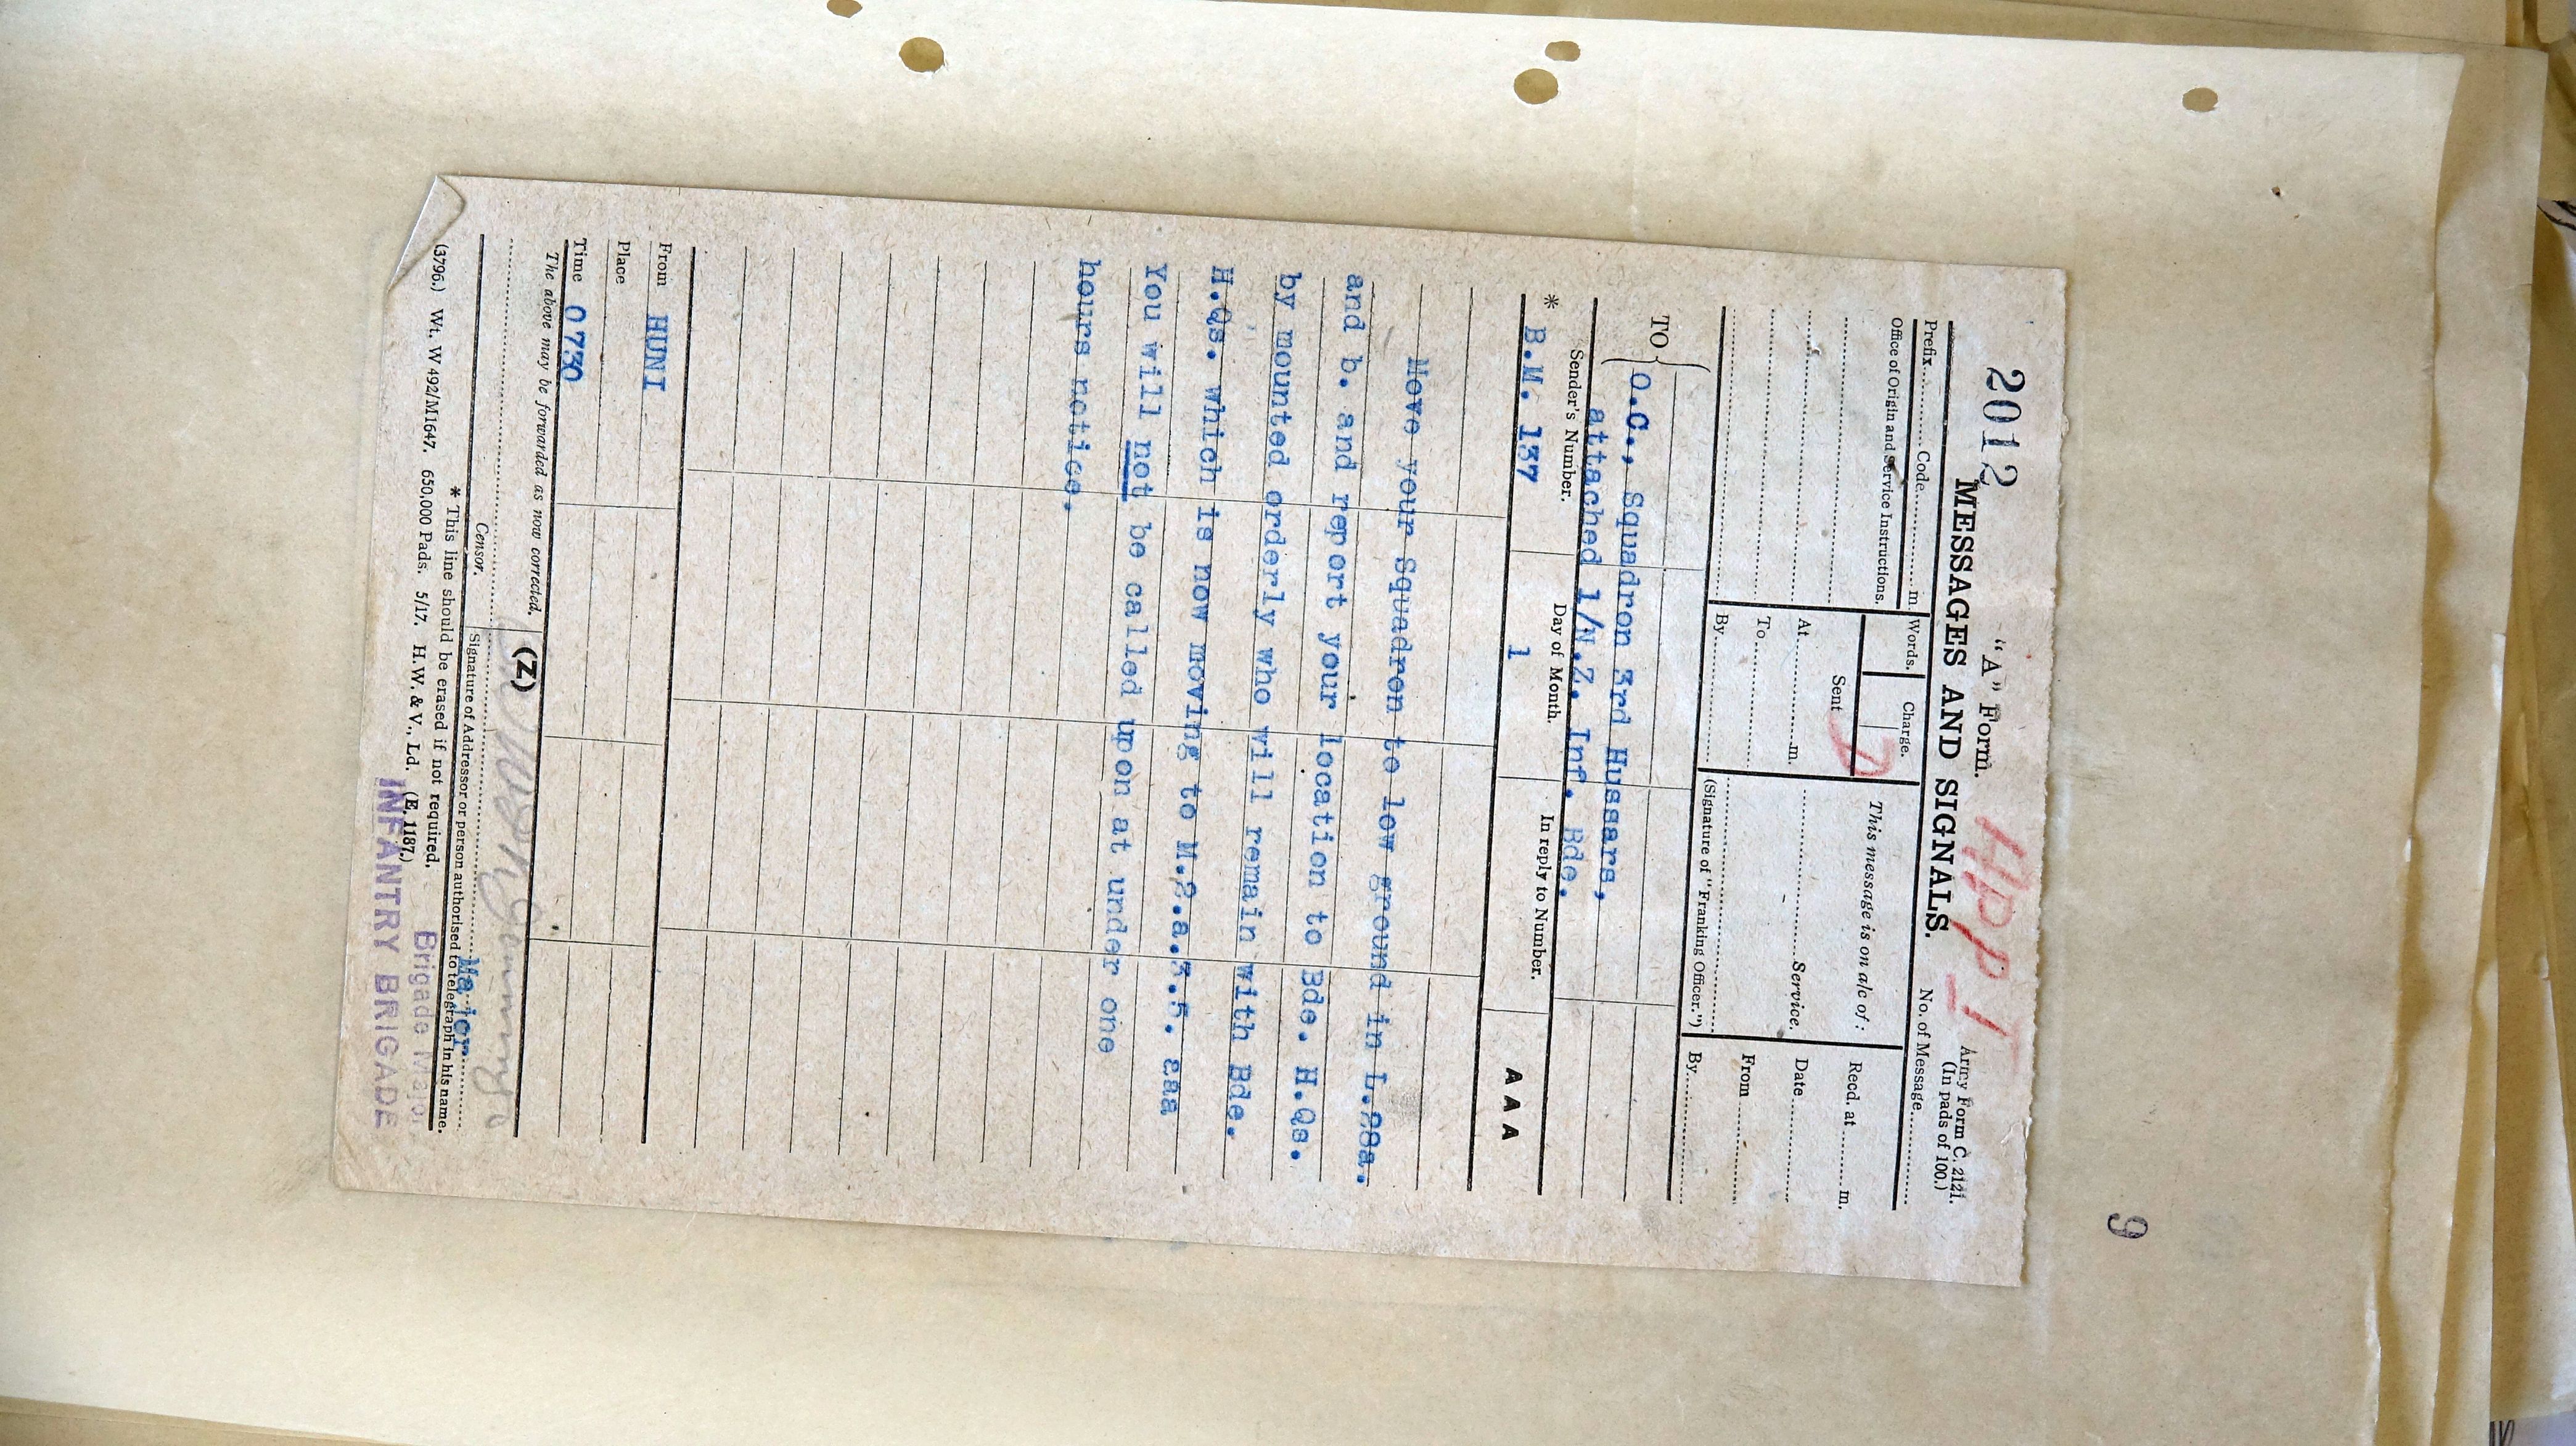 9
2012
APP 1
"A" Form.
Army Form C. 2121.
(In pads of 100.)
MESSAGES AND SIGNALS.
No. of Message
Prefix Code m.
Words.
Charge.
Office of Origin and Service Instructions.
This message is on a/c of:
Recd. at m.
Sent
At m.
Service.
Date
To
From
By
(Signature of "Franking Officer.")
By
TO
O.C., Squadron 3rd Hussars,
attached 1/N.Z. Inf. Bde.
Sender's Number.
Day of Month.
In reply to Number.
* B.M. 137
1
AAA
Move your Squadron to low ground in L.28a.
and b. and report your location to Bde. H.Qs.
by mounted orderly who will remain with Bde.
H.Qs. which is now moving to M.2.a.3.5. aaa
You will not be called upon at under one
hours notice.
From HUNI
Place
Time 0730
The above may be forwarded as now corrected.
(Z)
Censor.
Major
Signature of Addressor or person authorised to telegraph in his name.
* This line should be erased if not required.
(3796.) Wt. W 492/M1647. 650,000 Pads. 5/17. H.W. & V., Ld. (E. 1187.)
Brigade Major
INFANTRY BRIGADE